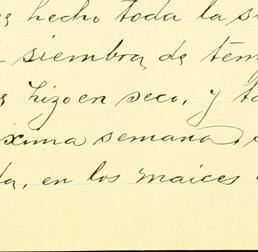 hecho toda la
siembra de tem
hizo en seco, y
xima semana
da, en los maices